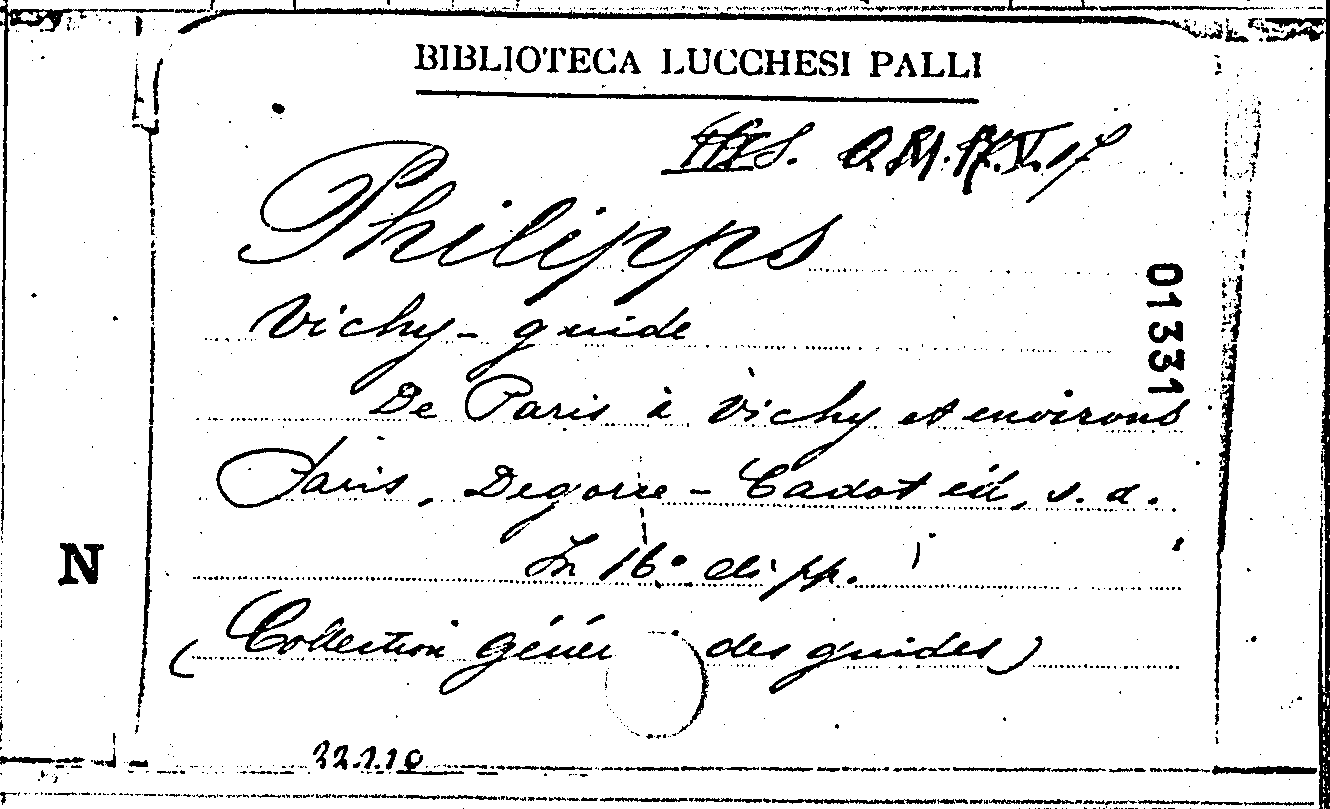 BIBLIOTECA LUCCHESI PALLI
Philipps
01331
Vichy - guide
De Paris à Vichy et environs
Paris, Degorce - Cadot éd, s. d.
N
In 16° di pp.
(Collection génér des guides)
22.1.10